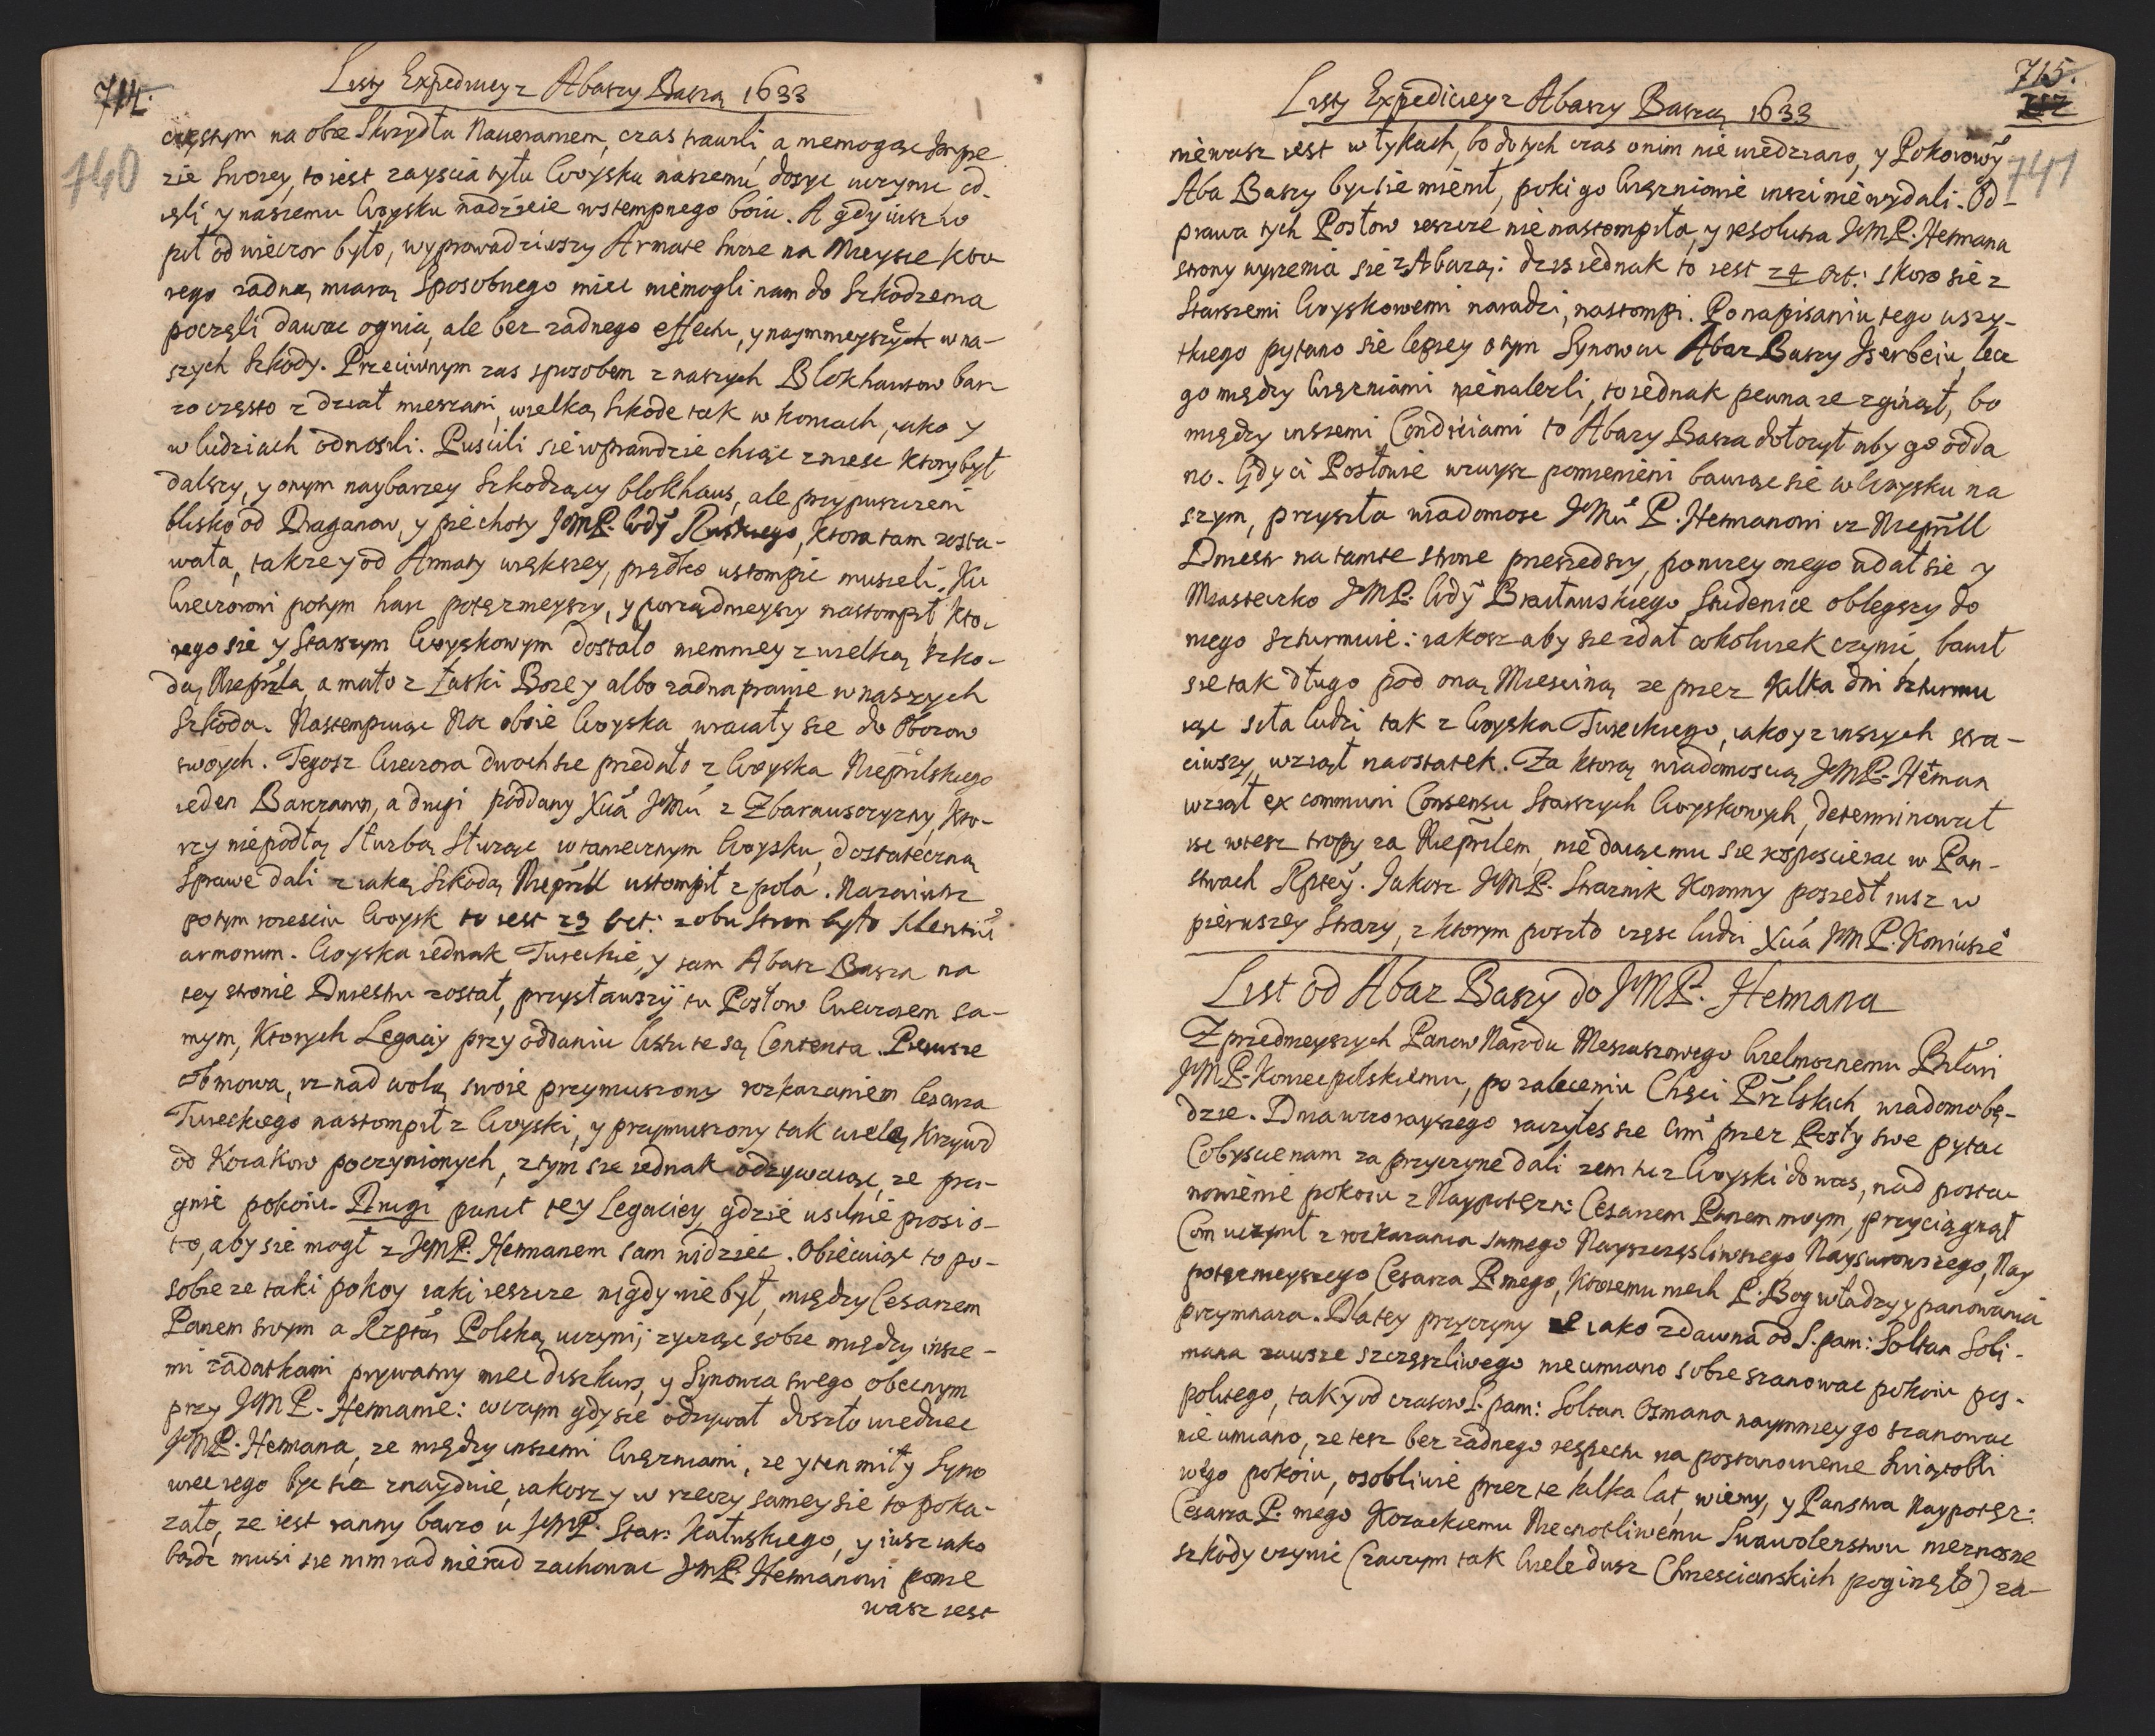 714.
740
Listy Expedicyey z Abaszy Baszą 1633
częstym na obie Skrzydła Nacieraniem, czas trawili, a niemogąc Impre
zie Swoiey, to iest zayścia tyłu Woysku naszemu, dosyc uczynic od-
ięli y naszemu Woysku nadzieie wstempnego boiu. A gdy iusz
od wieczor było, wyprowadziwszy Armate swoie na Mieysce kto
rego żadną miarą Sposobnego miec niemogli nam do Szkodzenia
poczęli dawac ognia, ale bez zadnego effectu, y naymnieyszey w na-
szych Szkody. Przeciwnym zas sposobem z naszych Blokhauzow bar
zo często z dział mieszani, wielką Szkode tak w koniach, iako y
w ludziach odnosili. Puscili sie wprawdzie chcąc zniesc ktory był
dalszy, y onym naybarzey Szkodzący blokhaus, ale przypuszczeni
blisko od Draganow, y piechoty JeMP. Wdy Ruskiego, ktora tam zosta-
wała, takze y od Armaty większey, prędko ustompic musieli. Ku
Wieczorowi potym harc potęznieyszy, y porządnieyszy nastompił kto-
rego sie y Starszym Woyskowym dostalo niemniey z wielką szko-
dą Nieprzla, a mało z Łaski Bozey albo zadna prawie w naszych
Szkoda. Nastempuiąc Noc obie Woyska wracały sie do Obozow
swoych. Tegosz Wieczora dwoch sie przedało z Woyska Nieprzlskiego
ieden Barzanin, a drugi poddany Xcia JeMci z Zbarauszczyzny, kto-
rzy niepodłą Słuzbą Słuząc w tamecznym Woysku, dostateczną
Sprawe dali z iaką Szkodą Nieprzll ustompił z pola. Nazaiutrz
potym zesciu Woysk to iest 23 Oct: z obu Stron było silentiu
armorum. Woyska iednak Tureckie, y sam Abasz Basza na
tey stronie Dniestru został, przysławszy tu Posłow Wieczorem sa-
mym, ktorych Legaciy przy oddaniu listu te są Contenta. Pierwsze
Obmowa, iz nad wolą swoie przymuszony rozkazaniem Cesarza
Tureckiego nastompił z Woyski, y przymuszony tak wielą Krzywd
od Kozakow poczynionych, z tym sie iednak odzywaiąc, ze pra-
gnie pokoiu. Drugi punct tey Legaciey gdzie usilnie prosi o-
to, aby sie mogł z JeMP. Hetmanem sam widziec. Obiecuiąc to po-
sobie ze taki pokoy iaki ieszcze nigdy nie był, między Cesarzem
Panem swym a Rzptą Polską uczyni; zycząc sobie między insze-
mi zadatkami prywatny miec diszkurs, y Synowca swego obecnym
przy JeMP. Hetmanie: w czym gdy sie odzywał doszło wiedziec
JeMP. Hetmana, ze między inszemi Więzniami, ze y ten miły Syno
wiec iego byc sie znayduie, iakosz y w rzeczy samey sie to poka-
zało, ze iest ranny barzo u JeMP. Star: Kałuskiego, y iusz iako
bądz musi sie nim rad nierad zachowac JeMP. Hetmanowi ponie
wasz iest
715.
741
Listy Expediciey z Abaszy Baszą 1633
niewasz iest w łykach, bo do tych czas o nim nie wiedziano, y Pokoiowy
Aba Baszy byc sie mienił, poki go Więzniowie inszi nie wydali. Od-
prawa tych Posłow ieszcze nie nastompiła, y resolutia JeMP. Hetmana
strony wyrzenia sie z Abazą: dzis iednak to iest 24 Oct: skoro sie z
Starszemi Woyskowemi naradzi, nastompi. Po napisaniu tego wszy-
tkiego pytano sie lepiey o tym Synowcu Abaz Baszy Iserbeiu, lecz
go między Więzniami nie nalezli, to iednak pewna ze zginął, bo
między inszemi Conditiami to Abazy Basza dołozył aby go odda
no. Gdy ci Posłowie wzwysz pomienieni bawiąc sie w Woysku na
szym, przyszła wiadomosc JeMci P. Hetmanowi iz Nieprzll
Dniestr na tamte strone przeszedszy, ponizey onego udał sie y
Miasteczko JeMP. Wdy Bracławskiego Studenice obległszy do
niego szturmuie: iakosz aby sie zdał cokolwiek czynic, bawił
sie tak długo pod oną Miesciną ze przez kilka dni szturmu
iąc siła ludzi tak z Woyska Tureckiego, iako y z inszych stra-
ciwszy, wziął naostatek. Za ktorą wiadomoscią JeMP. Hetman
wziął ex communi Consensu Starszych Woyskowych, determinował
isc wtesz tropy za Nieprzlem, nie daiąc mu sie rosposcierac w Pan-
stwach Rptey. Jakosz JeMP. Straznik Koronny poszedł iusz w
pierwszey Strazy, z ktorym poszło częsc ludzi Xcia JeM P. Koniusze
List od Abaz Baszy do JeMP. Hetmana
Z przednieyszych Panow Narodu Mesiaszowego Wielmoznemu
JeMP. Koniecpolskiemu, po zaleceniu Chęci Przlskich wiadomo bę-
dzie. Dnia wczorayszego raczyłes sie Wm przez Posły swe pytac
Cobyscie nam za przyczyne dali zem tu z Woyski do was, nad posta-
nowienie pokoiu z Naypotęzn: Cesarzem Panem moym, przyciągnął
Com uczynił z rozkazania samego Nayszczęsliwszego, Naysurowszego, Nay
potęznieyszego Cesarza P. mego, ktoremu niech P. Bog władzy y panowania
przymnaza. Dla tey przyczyny iako zdawna od S. pam: Soltan Soli-
mana zawsze szczęszliwego nie umiano sobie szanowac pokoiu pos-
politego, tak y od czasow S. pam: Soltan Osmana naymniey go szanowac
nie umiano, ze tesz bez zadnego respectu na postanowienie Swiątobli
wego pokoiu, osobliwie przez te kilka lat, wiemy, y Panstwa Naypotęz:
Cesarza P. mego Kozackiemu Niecnotliwemu Swawolenstwu nieznosne
szkody czynic (zaczym tak Wiele dusz Chrzescianskich poginęło) za-